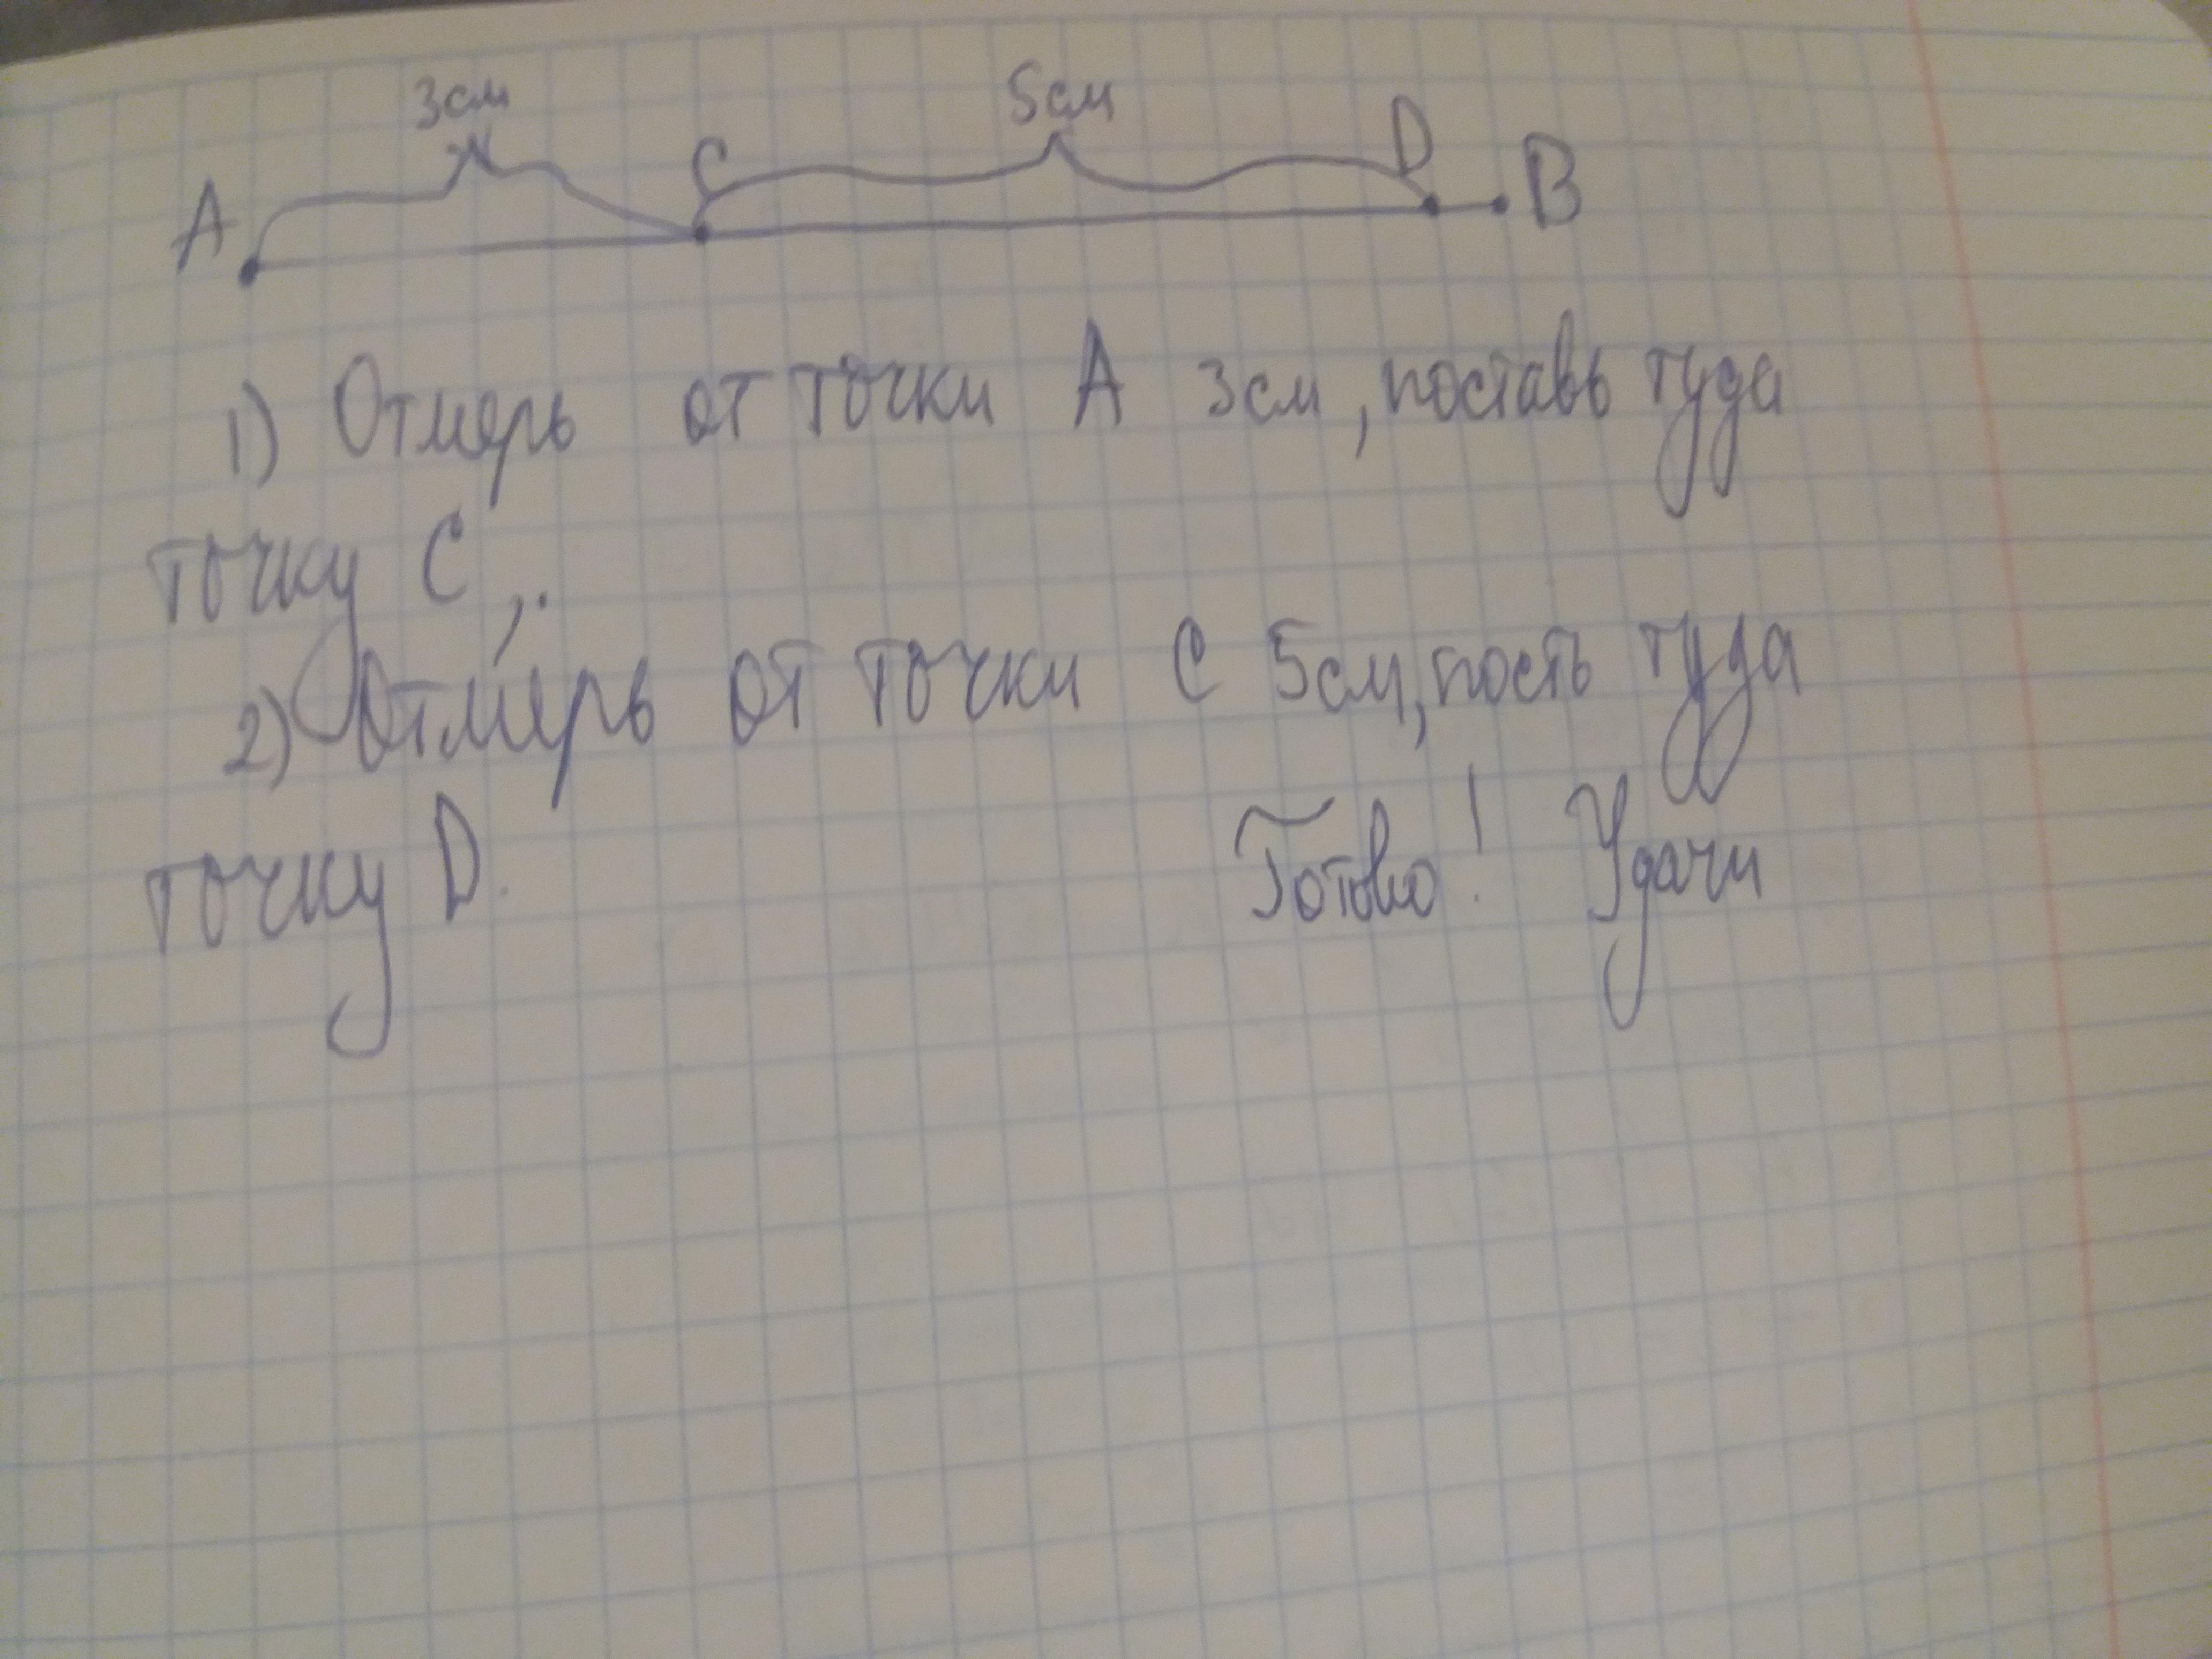 3см 5см
A C D B
1) Отмерь от точки А 3см, поставь туда
точку С,.
2) Отмерь от точки С 5см, пость туда
точку D. Готово! Удачи